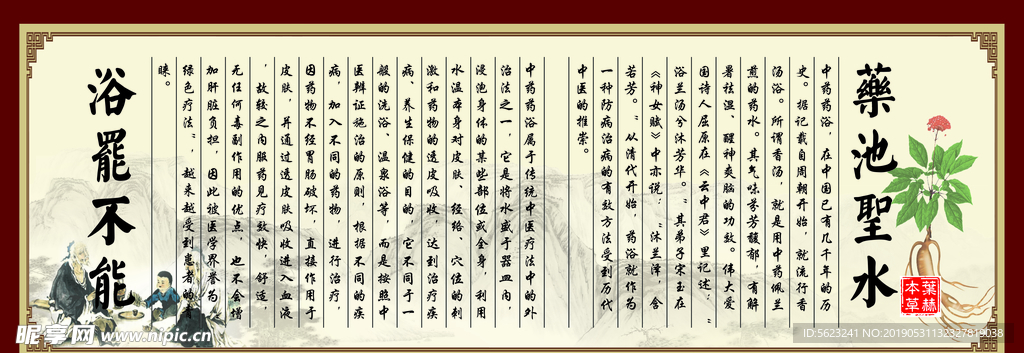 藥池聖水
中药药浴，在中国已有几千年的历
史。据记载自周朝开始，就流行香
汤浴。所谓香汤，就是用中药佩兰
煎的药水。其气味芬芳馥郁，有解
暑祛湿、醒神爽脑的功效。伟大爱
国诗人屈原在《云中君》里记述：“
浴兰汤兮沐芳华。”其弟子宋玉在
《神女赋》中亦说：“沐兰泽，含
若芳。”从清代开始，药浴就作为
一种防病治病的有效方法受到历代
中医的推崇。
中药药浴属于传统中医疗法中的外
治法之一，它是将水盛于器皿内，
浸泡身体的某些部位或全身，利用
水温本身对皮肤、经络、穴位的刺
激和药物的透皮吸收，达到治疗疾
病、养生保健的目的，它不同于一
般的洗浴、温泉浴等，而是按照中
医辩证施治的原则，根据不同的疾
病，加入不同的药物，进行治疗，
因药物不经胃肠破坏，直接作用于
皮肤，并通过透皮肤吸收进入血液
，故较之内服药见疗效快，舒适
无任何毒副作用的优点，也不会增
加肝脏负担，因此被医学界誉为“
绿色疗法”，越来越受到患者的青
睐。
浴罷不能
葉赫
本草
昵享网 www.nipic.cn
ID:5623241 NO:20190531132327819038